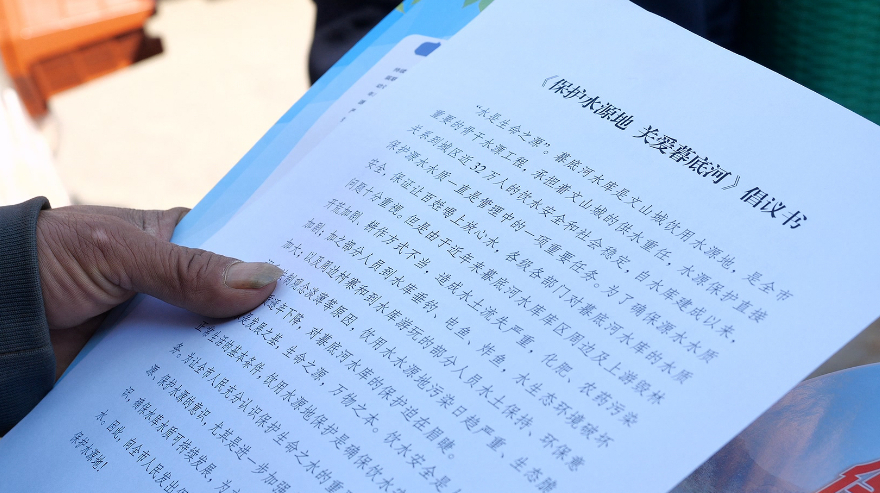 《保护水源地 关爱暮底河》倡议书
“水是生命之源”。暮底河水库是文山城饮用水源地，是全市
重要的骨干水源工程，承担着文山城的供水重任，水源保护直接
关系到城区近32万人的饮水安全和社会稳定，自水库建成以来，
保护源水水质一直是管理中的一项重要任务。为了确保源水水质
安全，保证让百姓喝上放心水，各级各部门对暮底河水库的水质
问题十分重视。但是由于近年来暮底河水库库区周边及上游毁林
开荒加剧，耕作方式不当，造成水土流失严重，化肥、农药污染
加剧；加之部分人员到水库垂钓、电鱼、炸鱼，水生态环境破坏
加大；以及周边村寨和到水库游玩的部分人员水土保持、环保意
等原因，饮用水水源地污染日趋严重、生态
下降，对暮底河水库的保护迫在眉睫。
发展之基，生命之源，万物之本。饮水安全是
基本条件，饮用水源地保护是确保饮水
务，为让全市人民充分认识保护生命之水的重
源、保护水源的意识，尤其是进一步加强
识，确保水库水质可持续发展，为
水。因此，向全市人民发出
保护水源地！